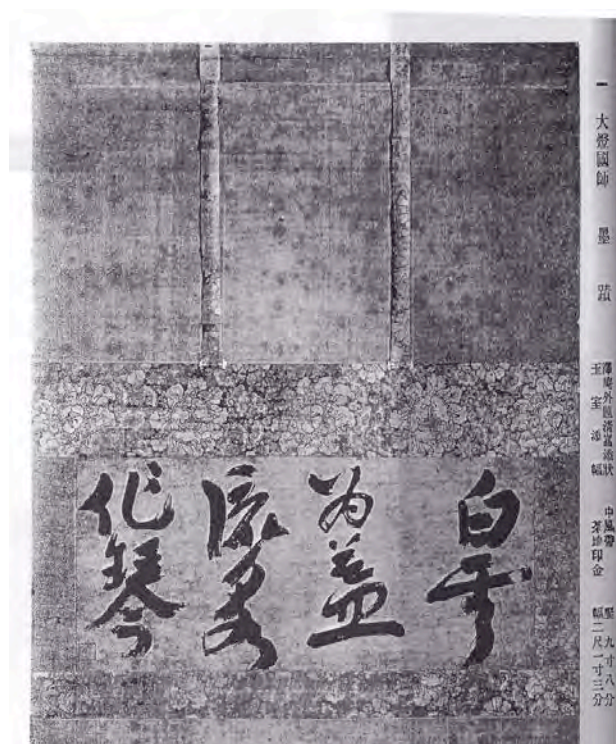 一 大燈國師 墨蹟
玉室添幅
中風帶
茶地印金
竪九寸八分
幅二尺一寸三分
白雲
為蓋
流泉
作琴